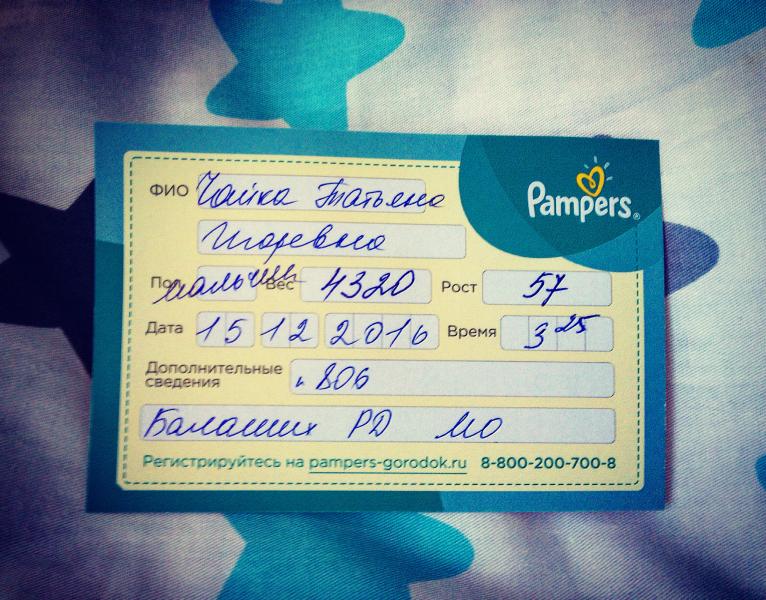 Pampers®
ФИО Чайка Татьяна
Игоревна
Пол мальчик Вес 4320 Рост 57
Дата 15 12 2016 Время 3 25
Дополнительные
сведения 806
Балаших РД МО
Регистрируйтесь на pampers-gorodok.ru 8-800-200-700-8